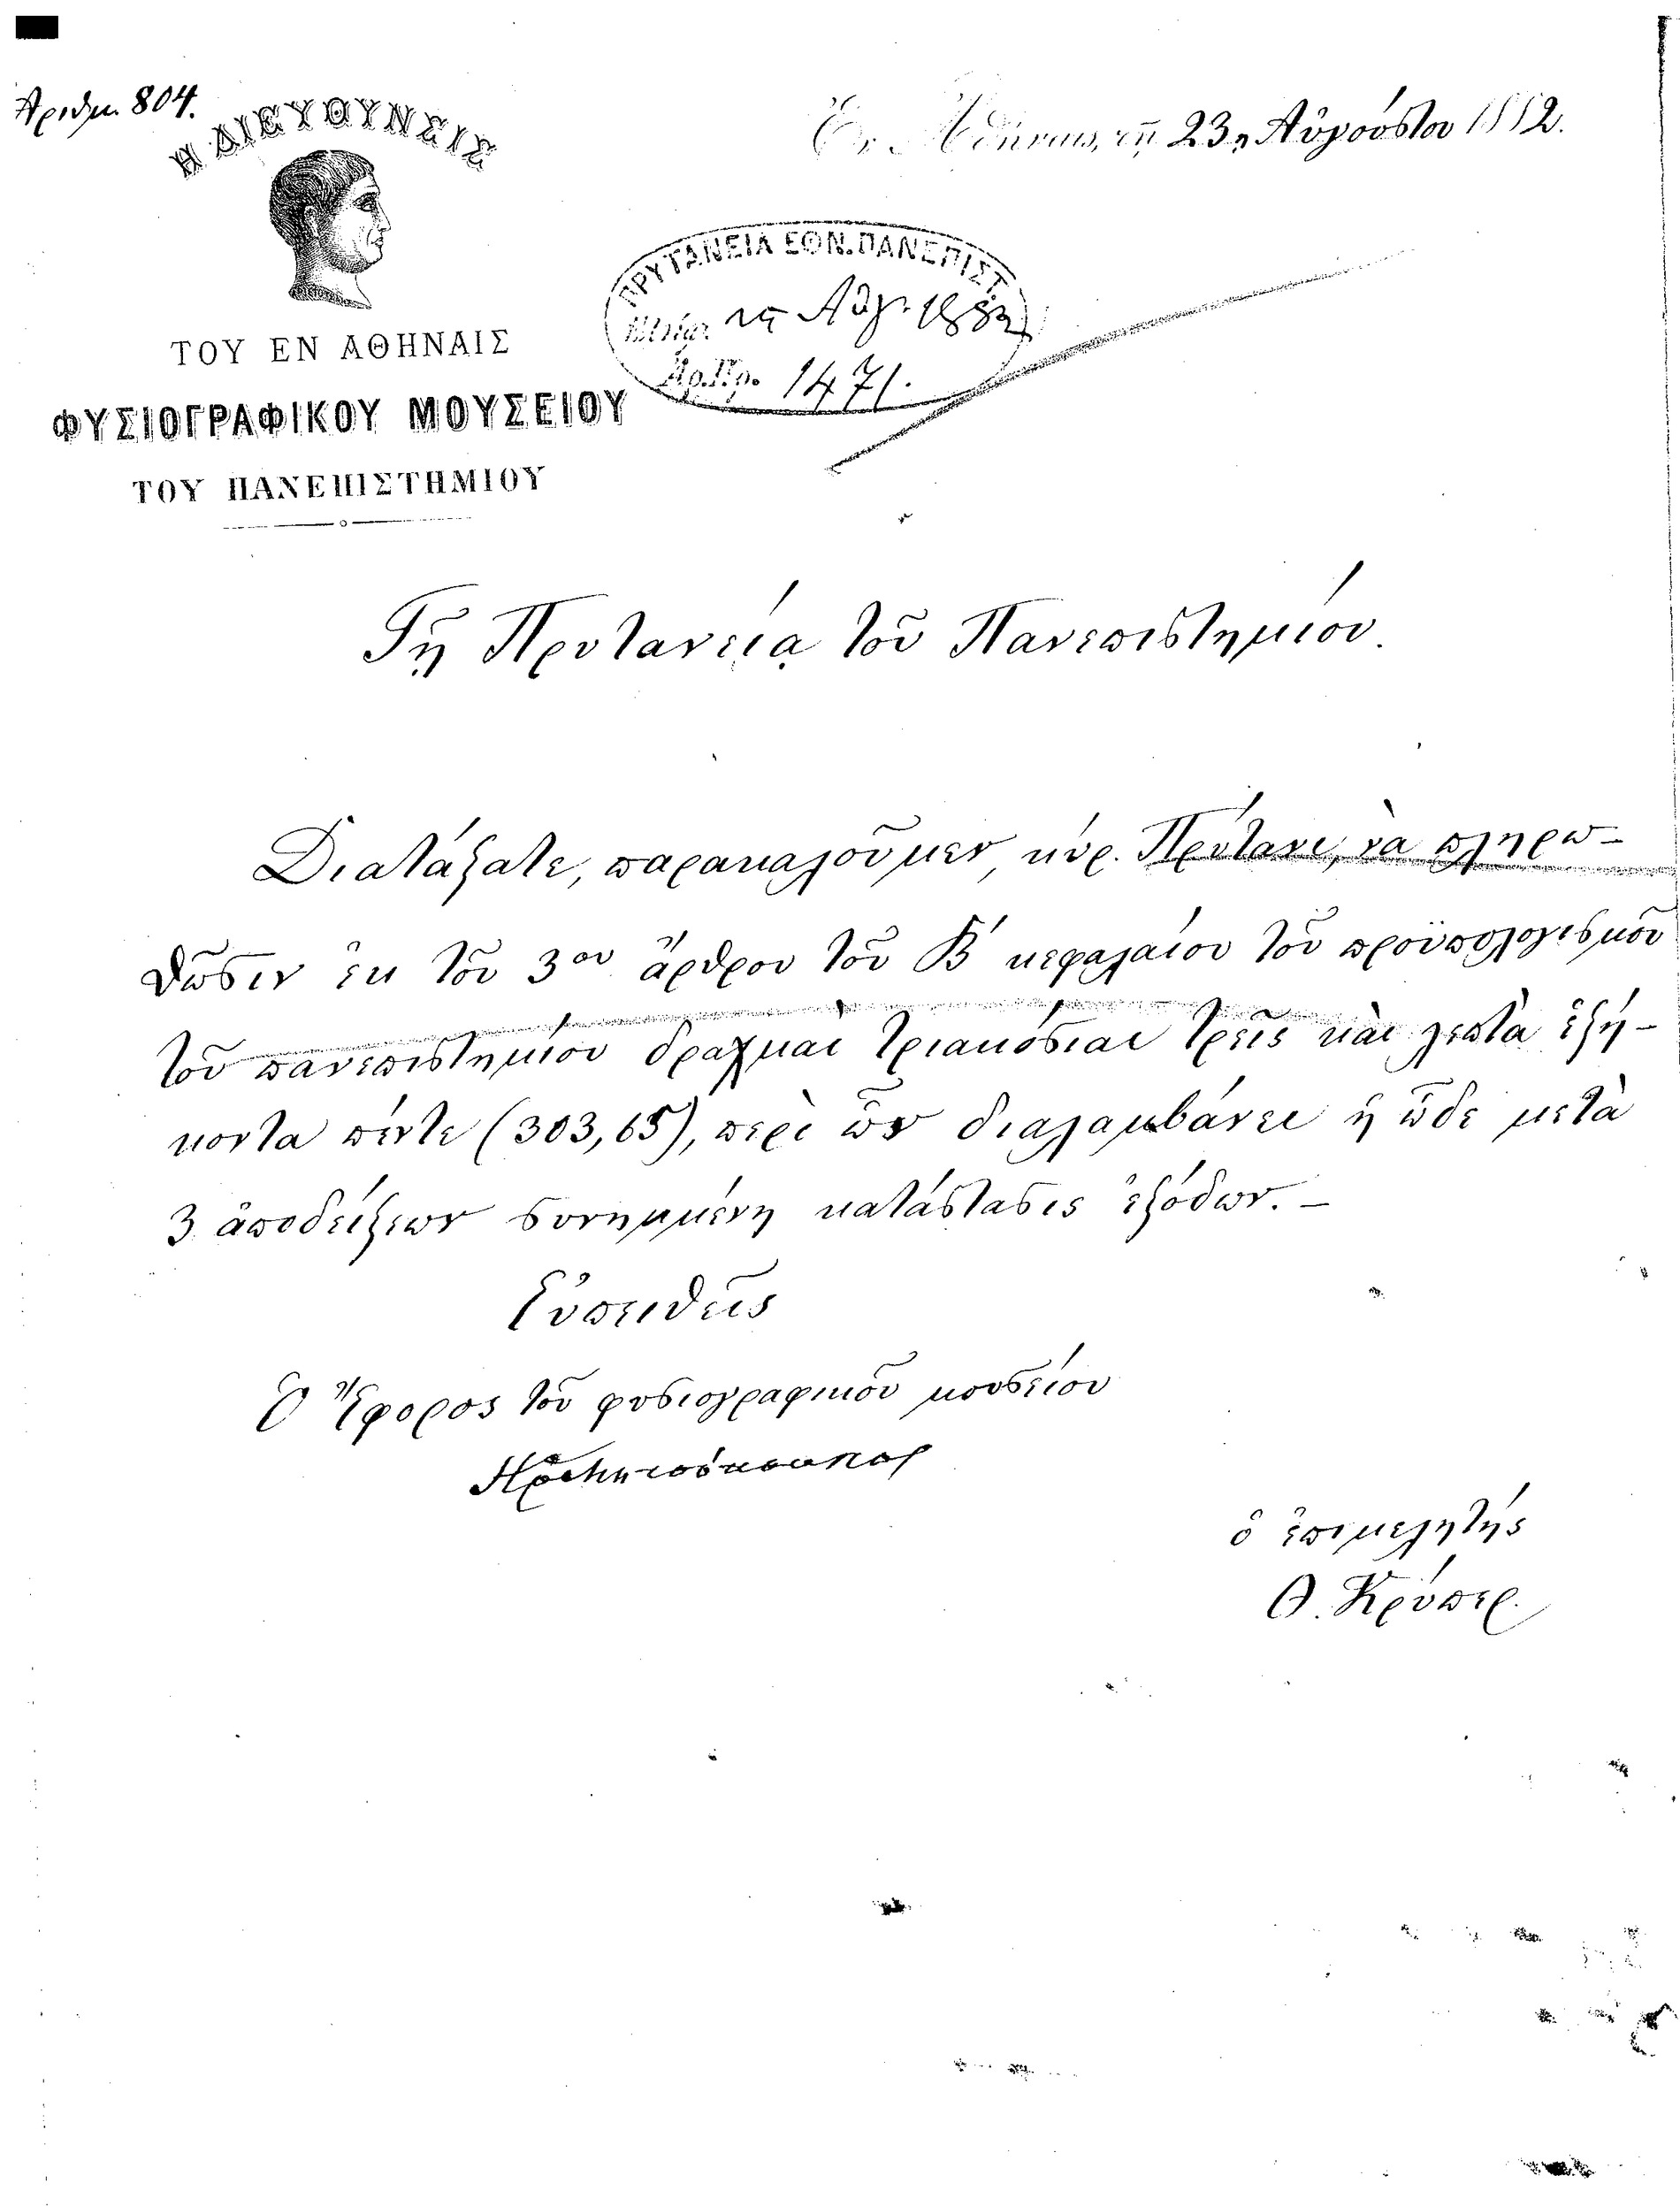 Ἀριθμ. 804.
Η ΔΙΕΥΘΥΝΣΙΣ
ΤΟΥ ΕΝ ΑΘΗΝΑΙΣ
ΦΥΣΙΟΓΡΑΦΙΚΟΥ ΜΟΥΣΕΙΟΥ
ΤΟΥ ΠΑΝΕΠΙΣΤΗΜΙΟΥ
Ἐν Ἀθήναις, τῇ 23ῃ Αὐγούστου 1882.
ΠΡΥΤΑΝΕΙΑ ΕΘΝ. ΠΑΝΕΠΙΣΤ
Αὐγ. 1882
Ἀρ. Πρ. 1471.
Τῇ Πρυτανείᾳ τοῦ Πανεπιστημίου.
Διατάξατε, παρακαλοῦμεν, κύρ. Πρύτανι, νὰ πληρω-
θῶσιν ἐκ τοῦ 3ου ἄρθρου τοῦ Β' κεφαλαίου τοῦ προϋπολογισμοῦ
τοῦ πανεπιστημίου δραχμαὶ τριακόσιαι τρεῖς καὶ λεπτὰ ἑξή-
κοντα πέντε (303,65), περὶ ὧν διαλαμβάνει ἡ ὧδε μετὰ
3 ἀποδείξεων συνημμένη κατάστασις ἐξόδων. –
Εὐπειθεῖς
Ὁ Ἔφορος τοῦ φυσιογραφικοῦ μουσείου
ὁ ἐπιμελητής
Θ. Κρύπερ.